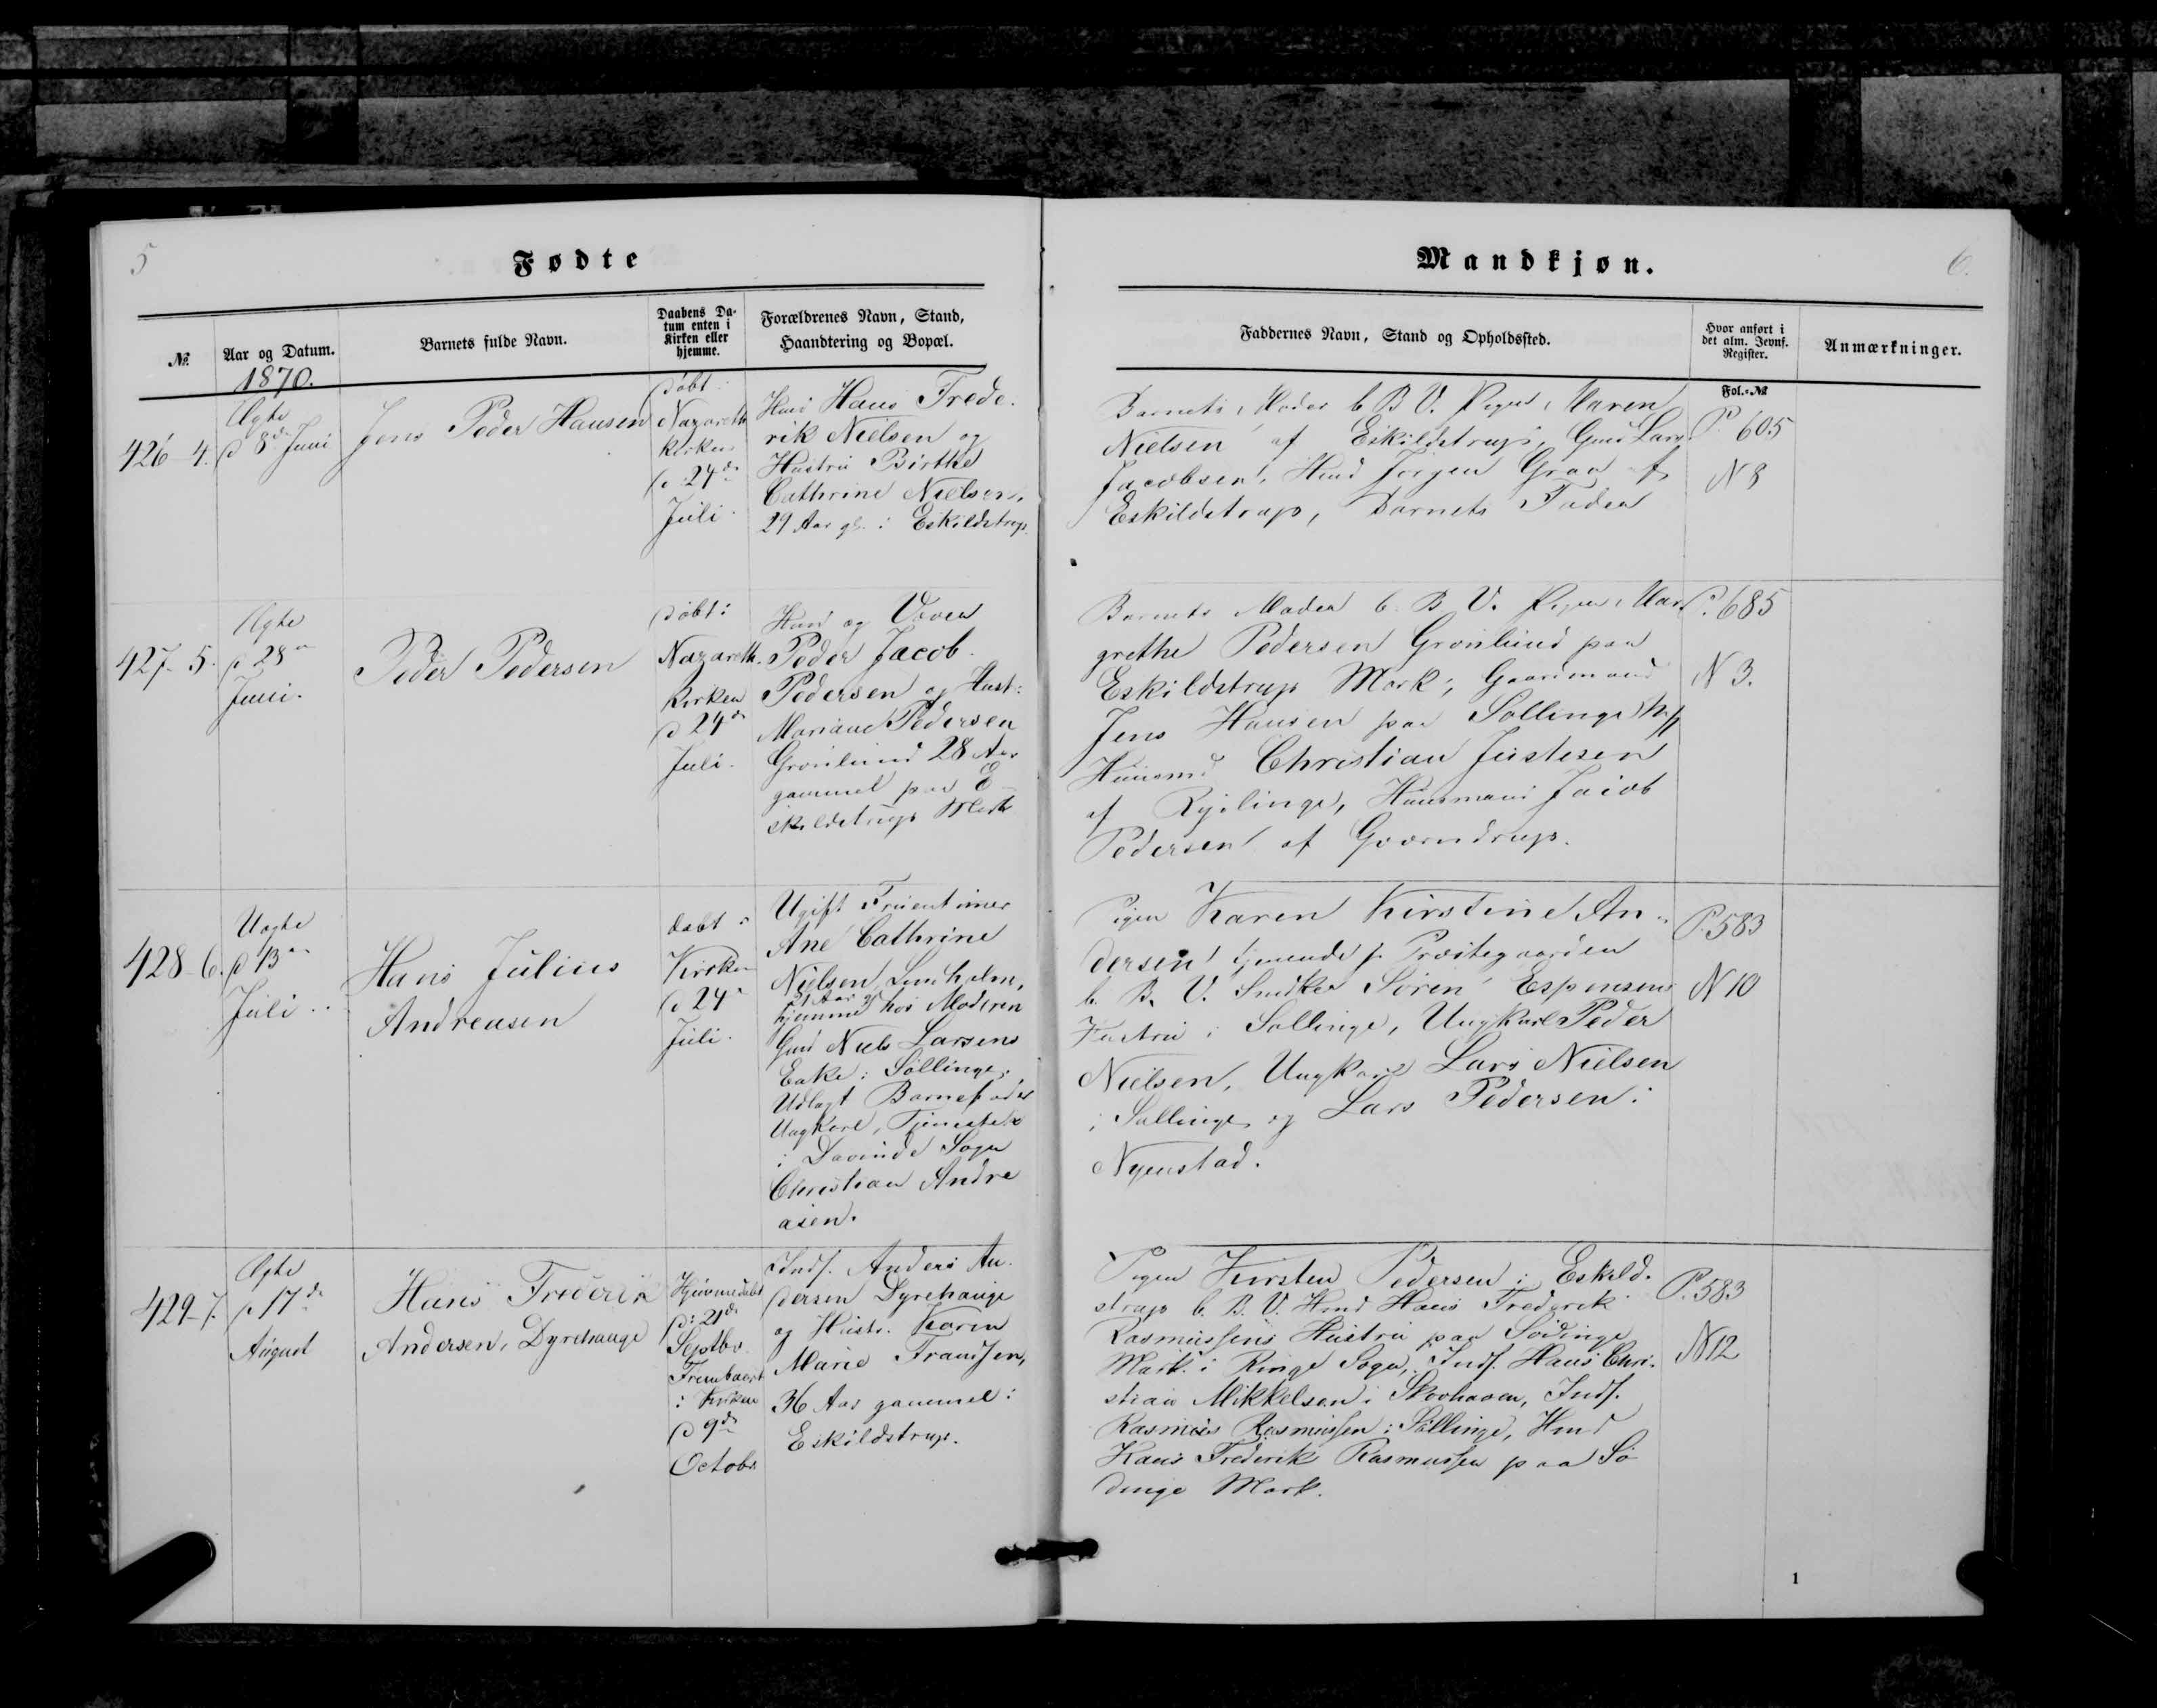 5
Fødte
№
Aar og Datum.
1870.
Barnets fulde Navn.
Daabens Da-
tum enten i
Kirken eller
hjemme.
Forældrenes Navn, Stand,
Haandtering og Bopæl.
426-4.
Ægte
d 8de Juni
Jens Peder Hansen
døbt i
Nazareth
Kirken
d 24de
Juli
Hmd Hans Frede-
rik Nielsen og
Hustru Birthe
Cathrine Nielsen,
29 Aar gl. i Eskildstrup
427-5.
Ægte
d 28
Juni.
Peder Pedersen
døbt i
Nazareth
Kirken
d 24de
Juli.
og Væver
Peder Jacob
Pedersen og Hust:
Mariane Pedersen
Grønlund 28 Aar
gammel paa E-
skildstrup Mark
428-6.
Uægte
d 13
Juli
Hans Julius
Andreasen
døbt i
Kirken
d 24
Juli.
Ugift Fruentimer
Ane Cathrine
Nielsen
21 Aar gl
hjemme hos Moderen
Gmd Niels Larsens
Enke i Søllinge.
Udlagt Barnefader
Ungkarl,
i Davinde Sogn
Christian Andre
asen.
429-7.
Ægte
d 17de
August
Hans Frederik
Andersen, Dyrehauge
Hjemmedøbt
d: 21de
Septbr.
Frembaaret
i Kirken
d 9de
Octobr
Indf. Anders An-
dersen Dyrehauge
og Hustr. Karen
Marie Frandsen,
36 Aar gammel i
Eskildstrup.
Mandkjøn.
6.
Faddernes Navn, Stand og Opholdssted.
Hvor anført i
det alm. Jevnf.
Register.
Anmærkninger.
Fol. №
Barnets Moder b. B. V. Pigen Maren
Nielsen af Eskildstrup, Gmd Lars
Jacobsen, Hmd Jørgen Graa af
Eskildstrup, Barnets Fader
P. 605
N 8
Barnets Moder b. B. V. Pigen Mar
grethe Pedersen Grønlund paa
Eskildstrup Mark, Gaardmand
Jens Hansen paa Søllinge
Huusmd Christian Justesen
af Ryslinge, Huusmand Jacob
Pedersen af Gværndrup.
P. 685
N 3.
Pigen Karen Kirstine An-
dersen tjenende p. Præstegaarden
b. B. V. Snedker Søren Espensens
Hustru i Søllinge, Ungkarl Peder
Nielsen, Ungkarl Lars Nielsen
i Søllinge og Lars Pedersen i
Nyenstad.
P. 583
N 10
Pigen Kirsten Pedersen i Eskild-
strup b. B. V. Hmd Hans Frederik
Rasmussens Hustru paa Sødinge
Mark i Ringe Sogn, Indf. Hans Chri-
stian Mikkelsen i Skovhaven, Indf.
Rasmus Rasmussen i Søllinge, Hmd
Hans Frederik Rasmussen paa Sø
dinge Mark.
P. 583
N 12
1